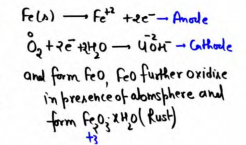 Fe(s) ⟶ Fe⁺² +2e⁻ → Anode
O₂ + 2e⁻ + 2H₂O ⟶ 4OH⁻ → Cathode
0 -2
and form FeO, FeO further oxidise
in presence of atomsphere and
form Fe₂O₃·xH₂O (Rust)
+3